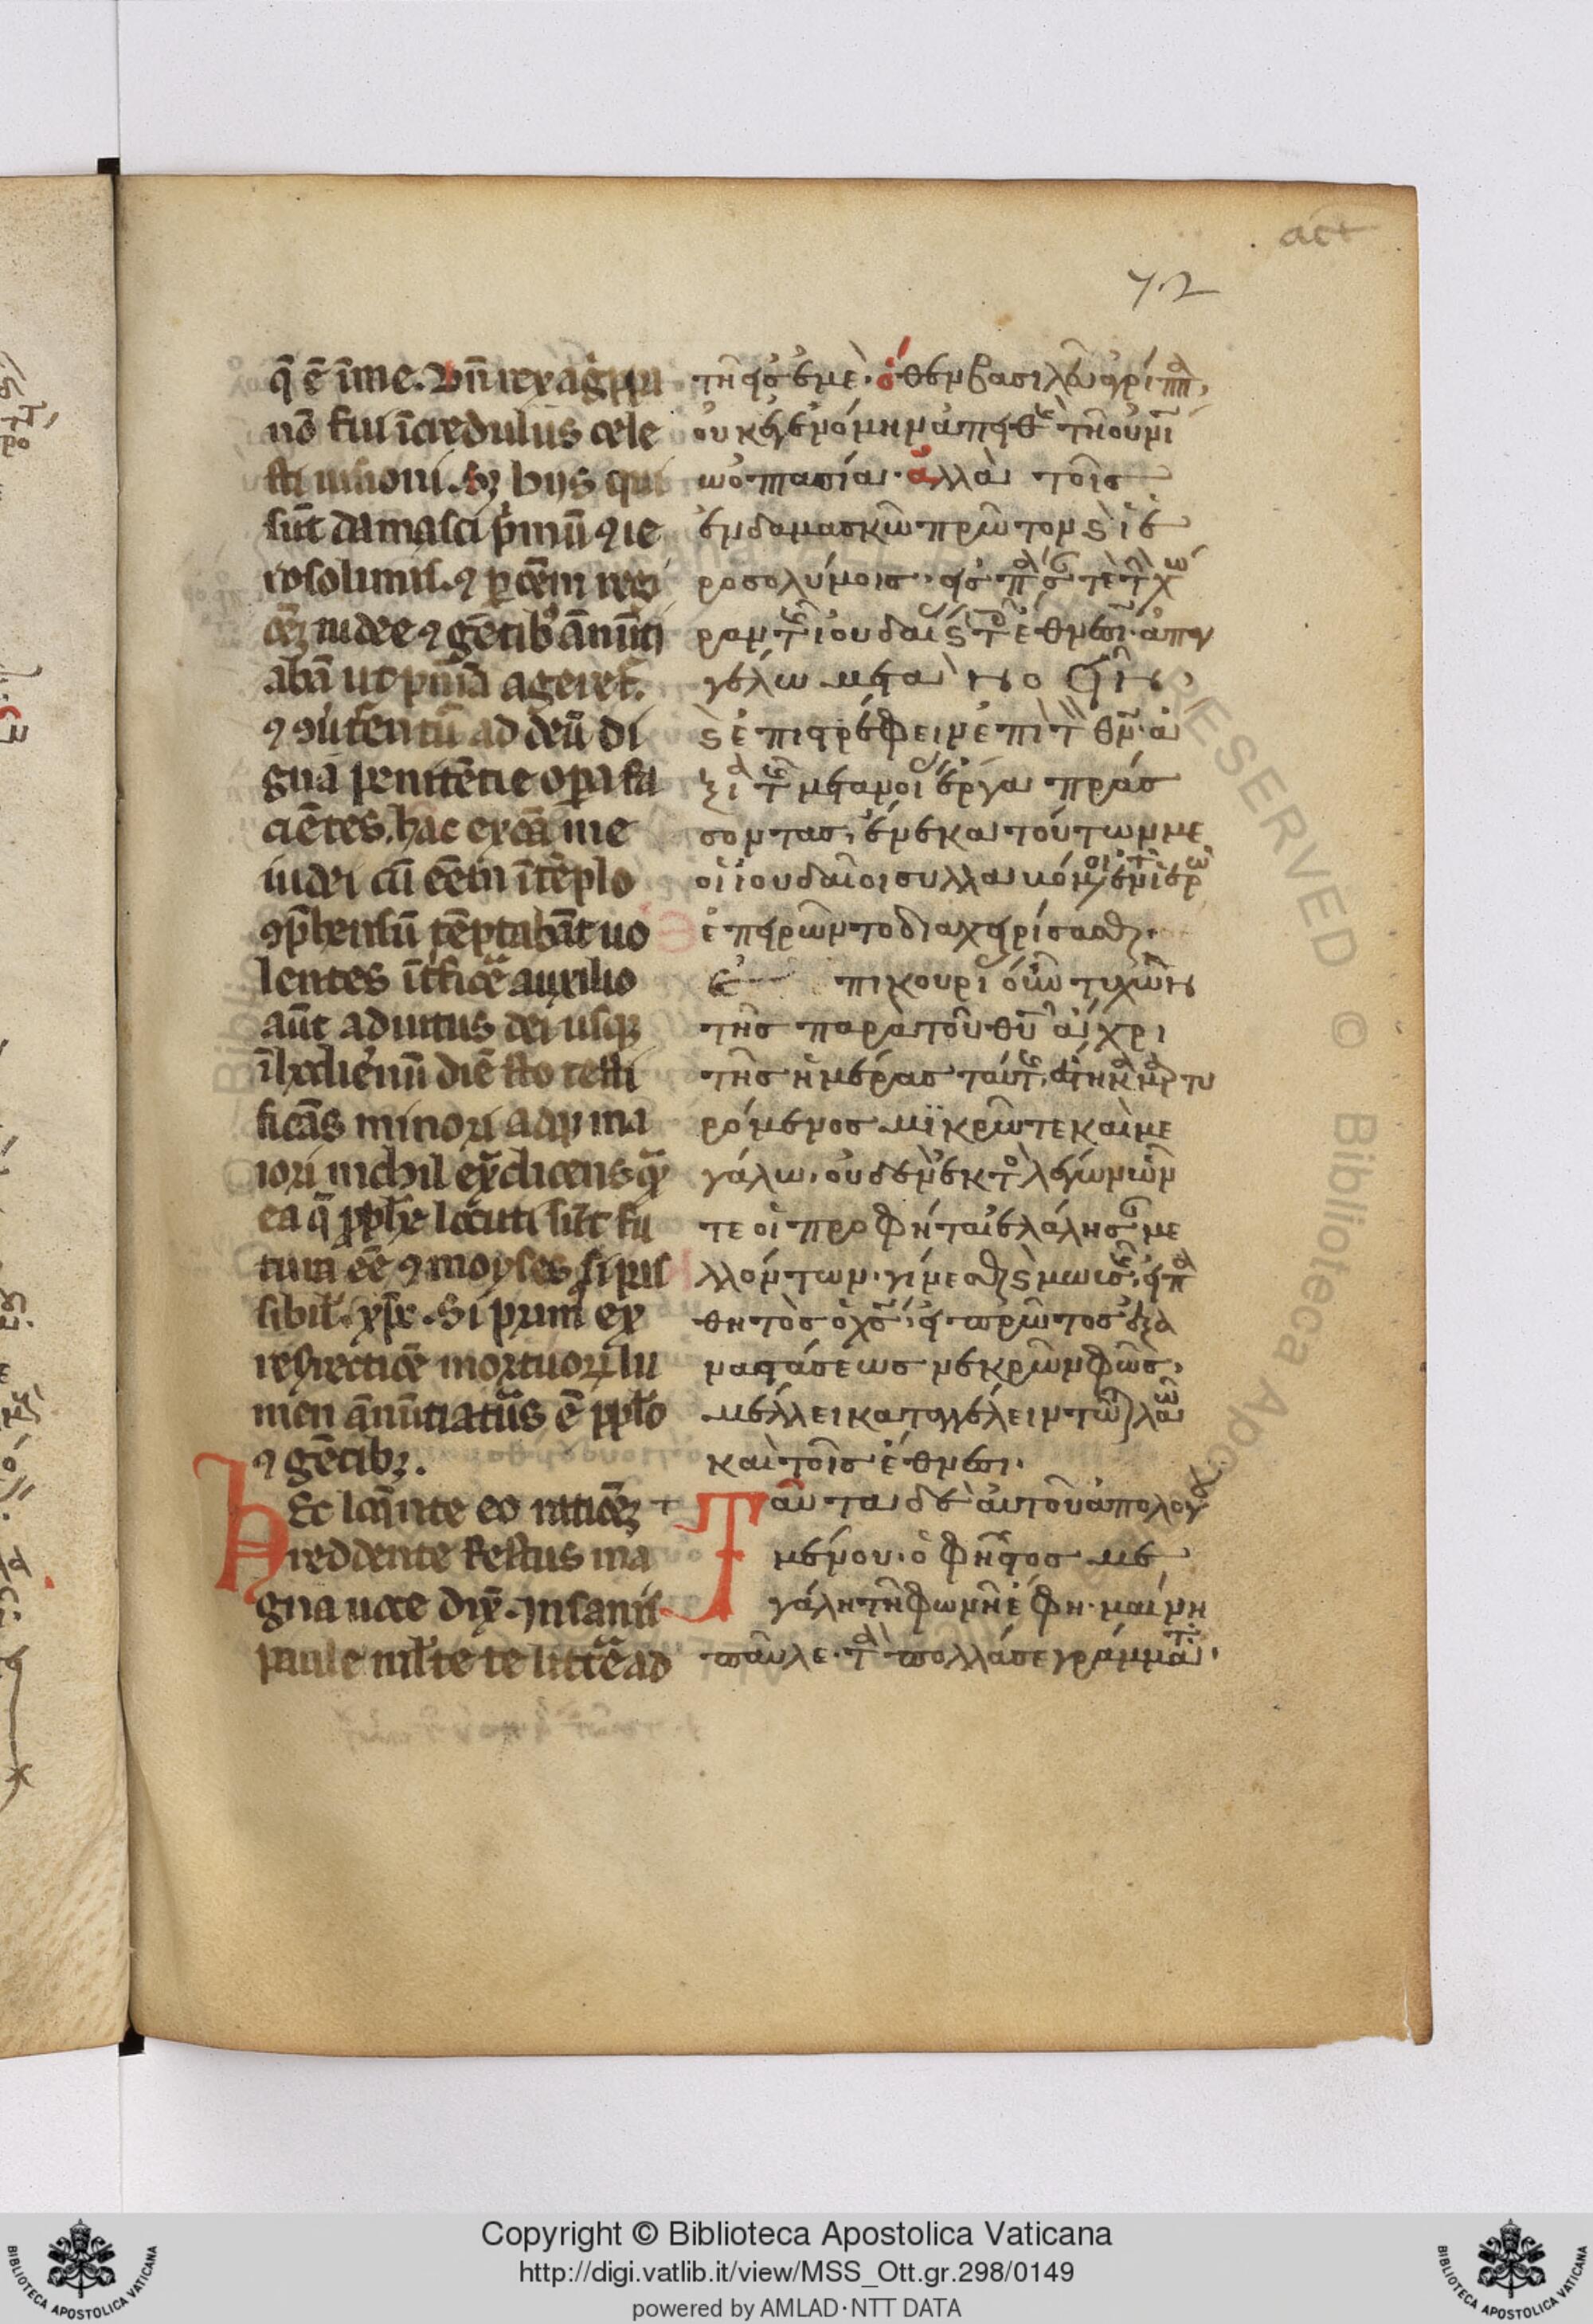 act
72
q̄ ē ī me. Vn̄ rex agͥppa
nō fui īcredulus cele
sti uisioni. Sꝫ hijs qui
sūt damasci pͥmū ⁊ ie
rosolimis. ⁊ ꝑ oēm regi
oēꝫ iudee ⁊ gētibꝰ ānūti
abā ut pnīā agerēt.
⁊ ꝯuͥterentur̄ ad deū di
gna penitētie oꝑa fa
ciētes. hac ex cā me
iudei cū eēm ī tēplo
ꝯp̄hensū tēptabāt uo
lentes īt̄ficē auxilio
aūt adiutus dei usqꝫ
ī hodiernū diē sto testi
ficās minori adqꝫ ma
iori nichil ext̄ dicens qᷓ
ea q̄ ꝓph̄e locuti sūt fu
tura eē ⁊ moyses si pas
sibil̓ xp̄c. Si primꝰ ex
resurectiōe mortuoꝝ lu
men ānūtiaturꝰ ē ppl̓o
⁊ gētibꝫ.
Hec loq̄nte eo ratiōeꝫ
reddente festus ma
gna uoce dix̄. Insanis
paule ml̓te te littē ad
τῆ εἰς ἐμὲ· ὅθεν βασιλεῦ ἀγρίππα,
οὐκ ἐγενόμην ἀπειθὴς τῆ οὐρανί
ω ὀπτασία· ἀλλὰ τοῖς
ἐν δαμασκῶ πρῶτον ϛ ἱε
ροσολύμοις· εἰς πᾶσάν τε τὴν χώ
ραν τῆς ἰουδαίας ϛ τοῖς ἔθνεσι· ἀπαγ
γέλλω μετανοεῖν,
ϛ ἐπιστρέφειν ἐπὶ τὸν θν̄· ἄ
ξια τῆς μετανοίας ἔργα πράσ
σοντας, ἕνεκα τούτων με
οἱ ἰουδαῖοι συλλαβόμενοι ἐν τῶ ἱερῶ
ἐπειρῶντο διαχειρίσασθαι.
ἐπικουρίας οὖν τυχὼν
τῆς παρὰ τοῦ θῡ ἄχρι
τῆς ἡμέρας ταύτης, ἕστηκα μαρτυ
ρόμενος μϊκρῶ τε καὶ με
γάλω, οὐδὲν ἐκτὸς λέγων ὧν
τε οἱ προφῆται ἐλάλησαν με
λλόντων γίνεσθαι ϛ μωισῆς, εἰ πα
θητὸς ὁ χς̄, εἰ πρῶτος ἐξ ἀ
ναστάσεως νεκρῶν φῶς,
μέλλει καταγγέλλειν τῶ λαῶ
καὶ τοῖς ἔθνεσι.
Ταῦτα δὲ αὐτοῦ ἀπολογου
μένου· ὁ φῆστος με
γάλη τῆ φωνῆ ἔφη· μαίνη
παῦλε· τὰ πολλά σε γράμματα·
Copyright © Biblioteca Apostolica Vaticana
http://digi.vatlib.it/view/MSS_Ott.gr.298/0149
powered by AMLAD·NTT DATA